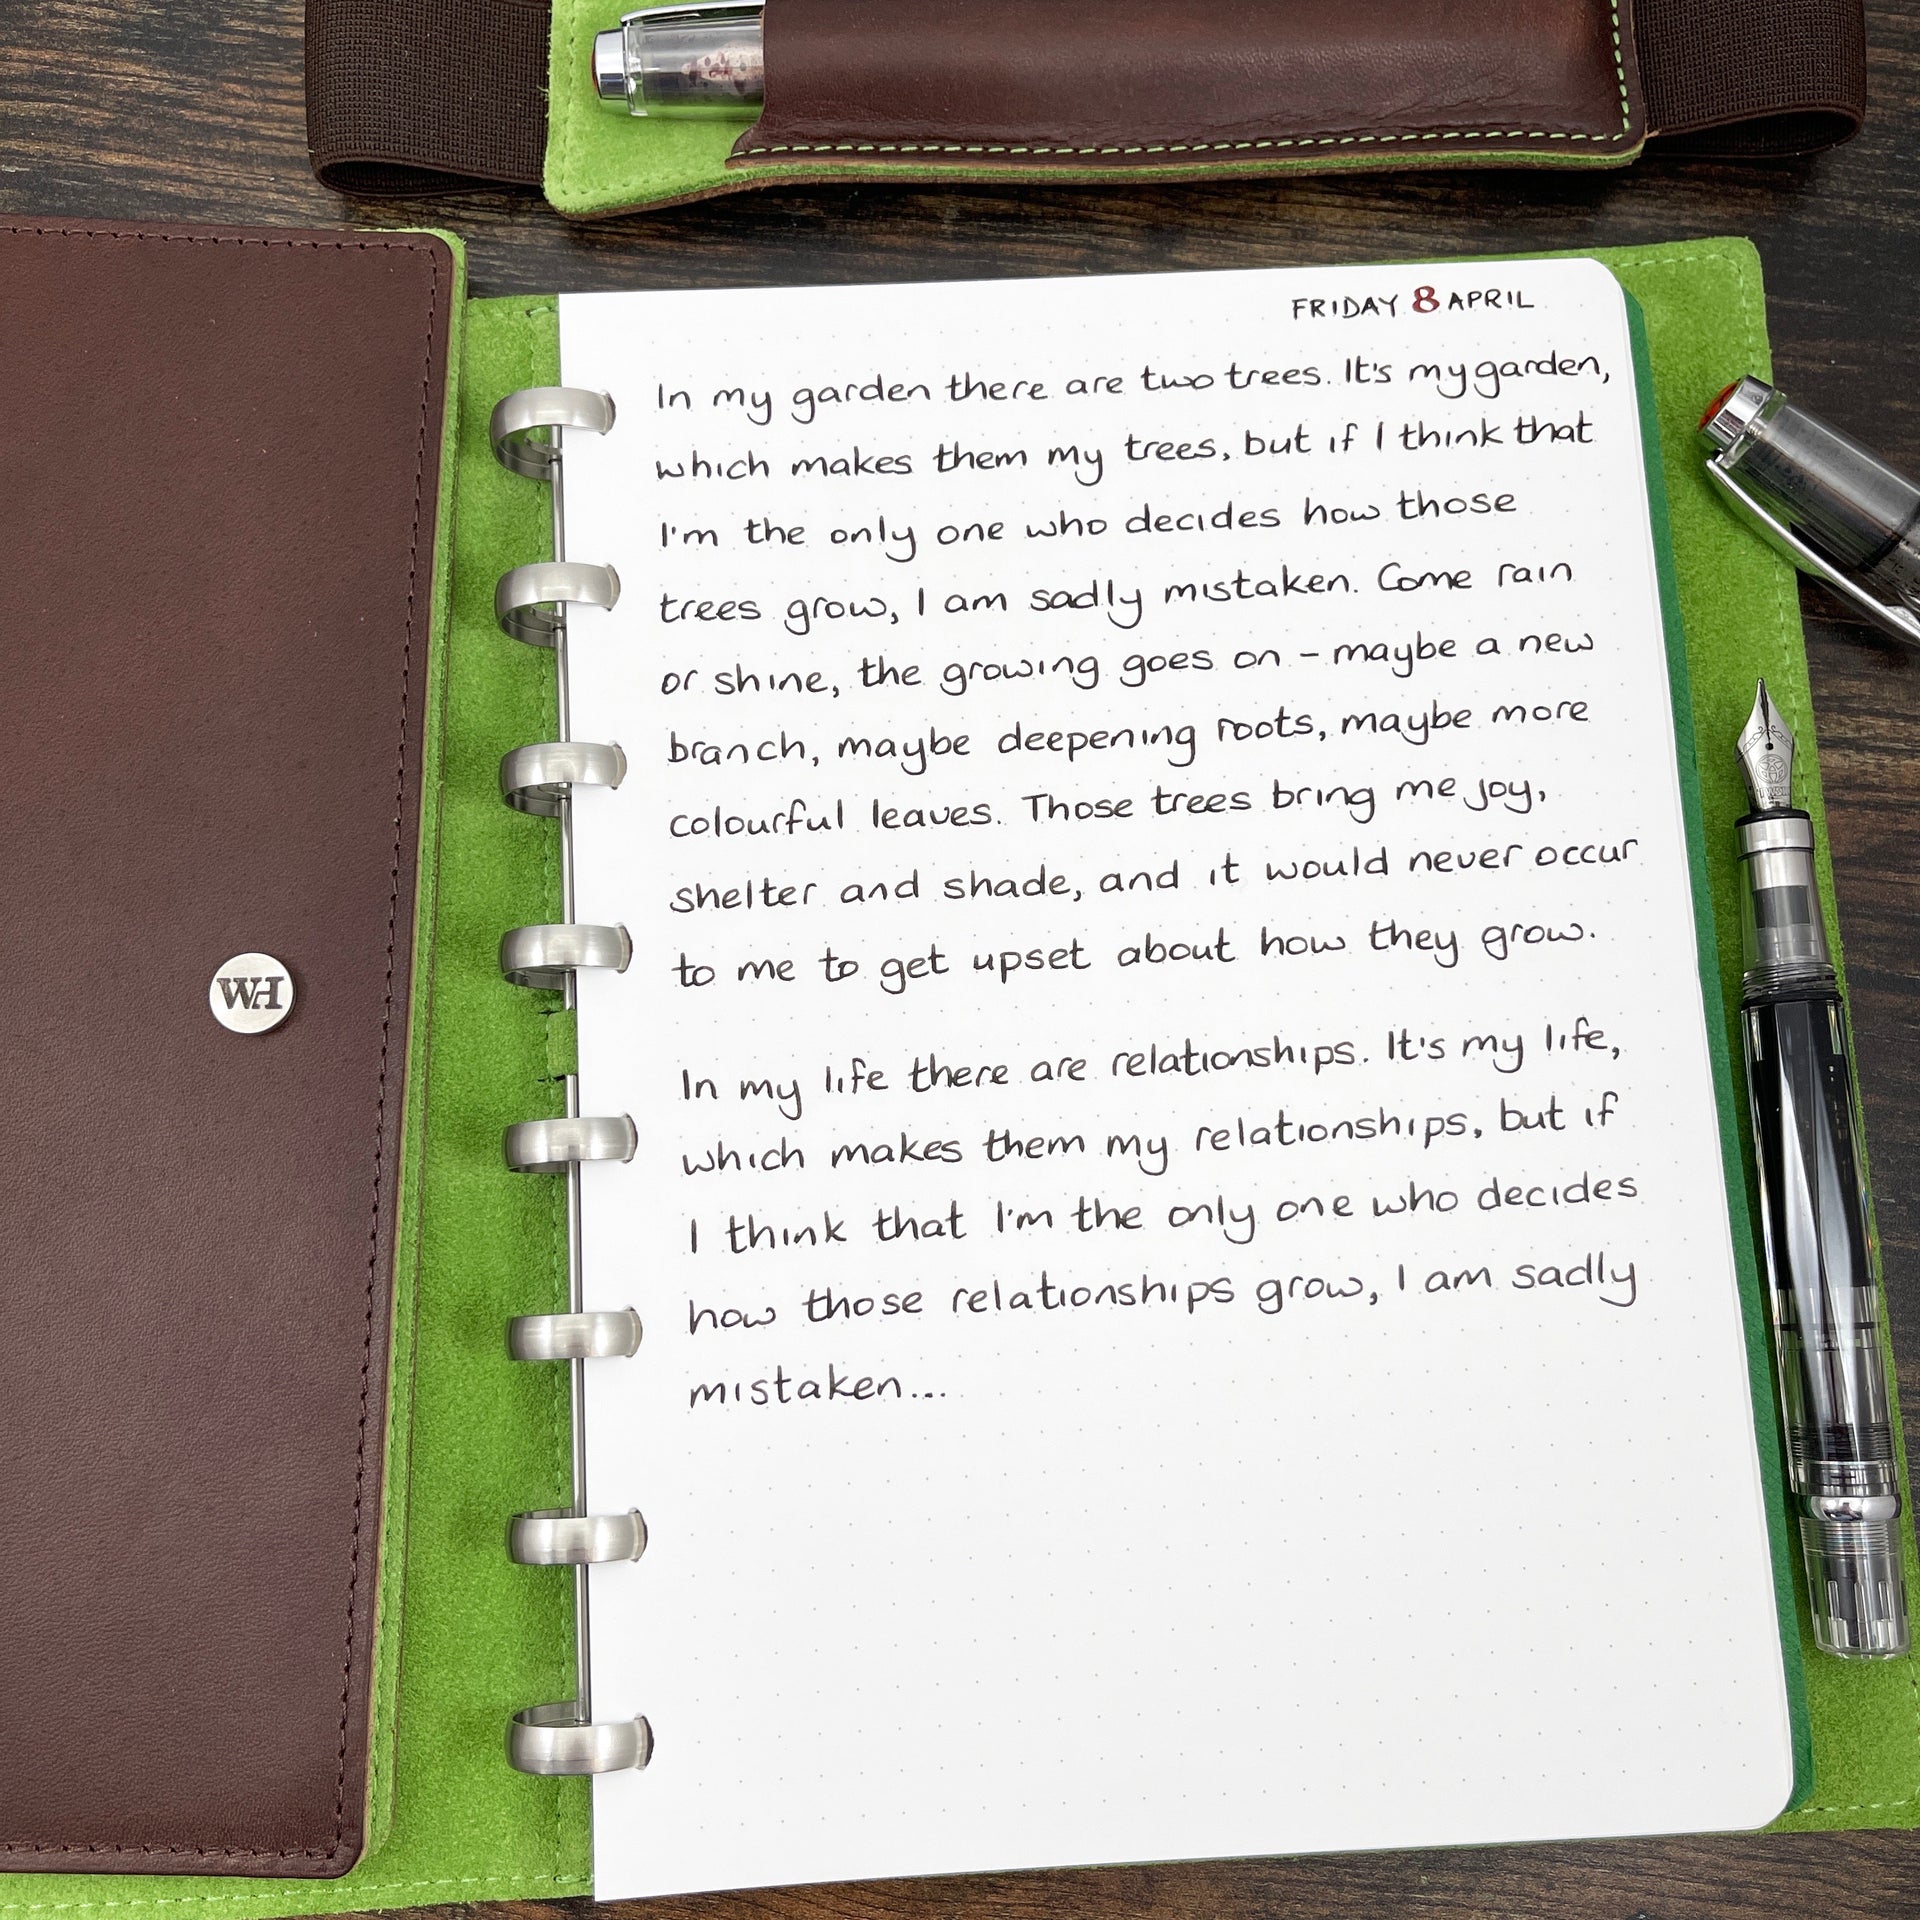 FRIDAY 8 APRIL
In my garden there are two trees. It's my garden,
which makes them my trees, but if I think that
I'm the only one who decides how those
trees grow, I am sadly mistaken. Come rain
or shine, the growing goes on - maybe a new
branch, maybe deepening roots, maybe more
colourful leaves. Those trees bring me joy,
shelter and shade, and it would never occur
to me to get upset about how they grow.
In my life there are relationships. It's my life,
which makes them my relationships, but if
I think that I'm the only one who decides
how those relationships grow, I am sadly
mistaken...
WH